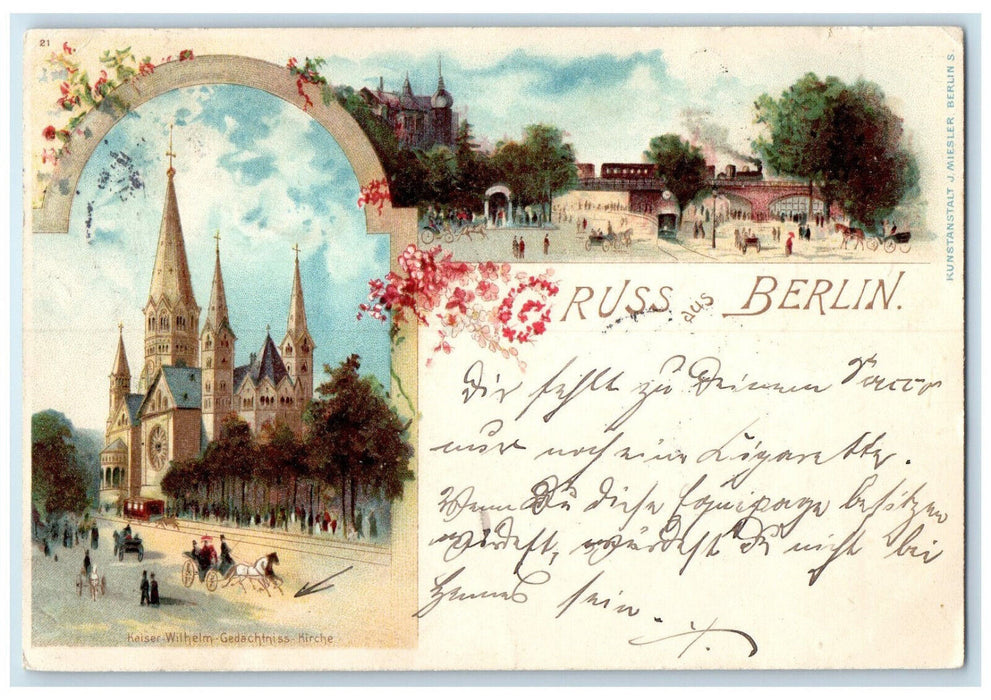 21
KUNSTANSTALT J. MIESLER, BERLIN S.
GRUSS aus BERLIN.
Dir fehlt zu Deinem Sacco
nur noch eine Cigarette.
Wenn Du diese Equipage besitzen
würdest, würdest Du nicht bei
sein.
Kaiser-Wilhelm-Gedächtniss-Kirche